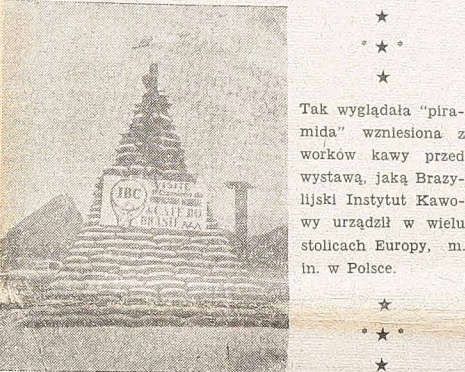 IBC
VISITE
CAFÉ DO
BRASIL
Tak wyglądała "pira-
mida" wzniesiona z
worków kawy przed
wystawą, jaką Brazy-
lijski Instytut Kawo-
wy urządził w wielu
stolicach Europy, m.
in. w Polsce.